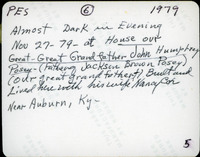 PES 6 1979
Almost Dark in Evening
Nov 27-79- at House our
Great-Great Grandfather John Humphrey
Posey- (Father of Jackson Brown Posey)
(our great grandfather) Built and
Lived here with his wife Nancy
Near Auburn, Ky-
5